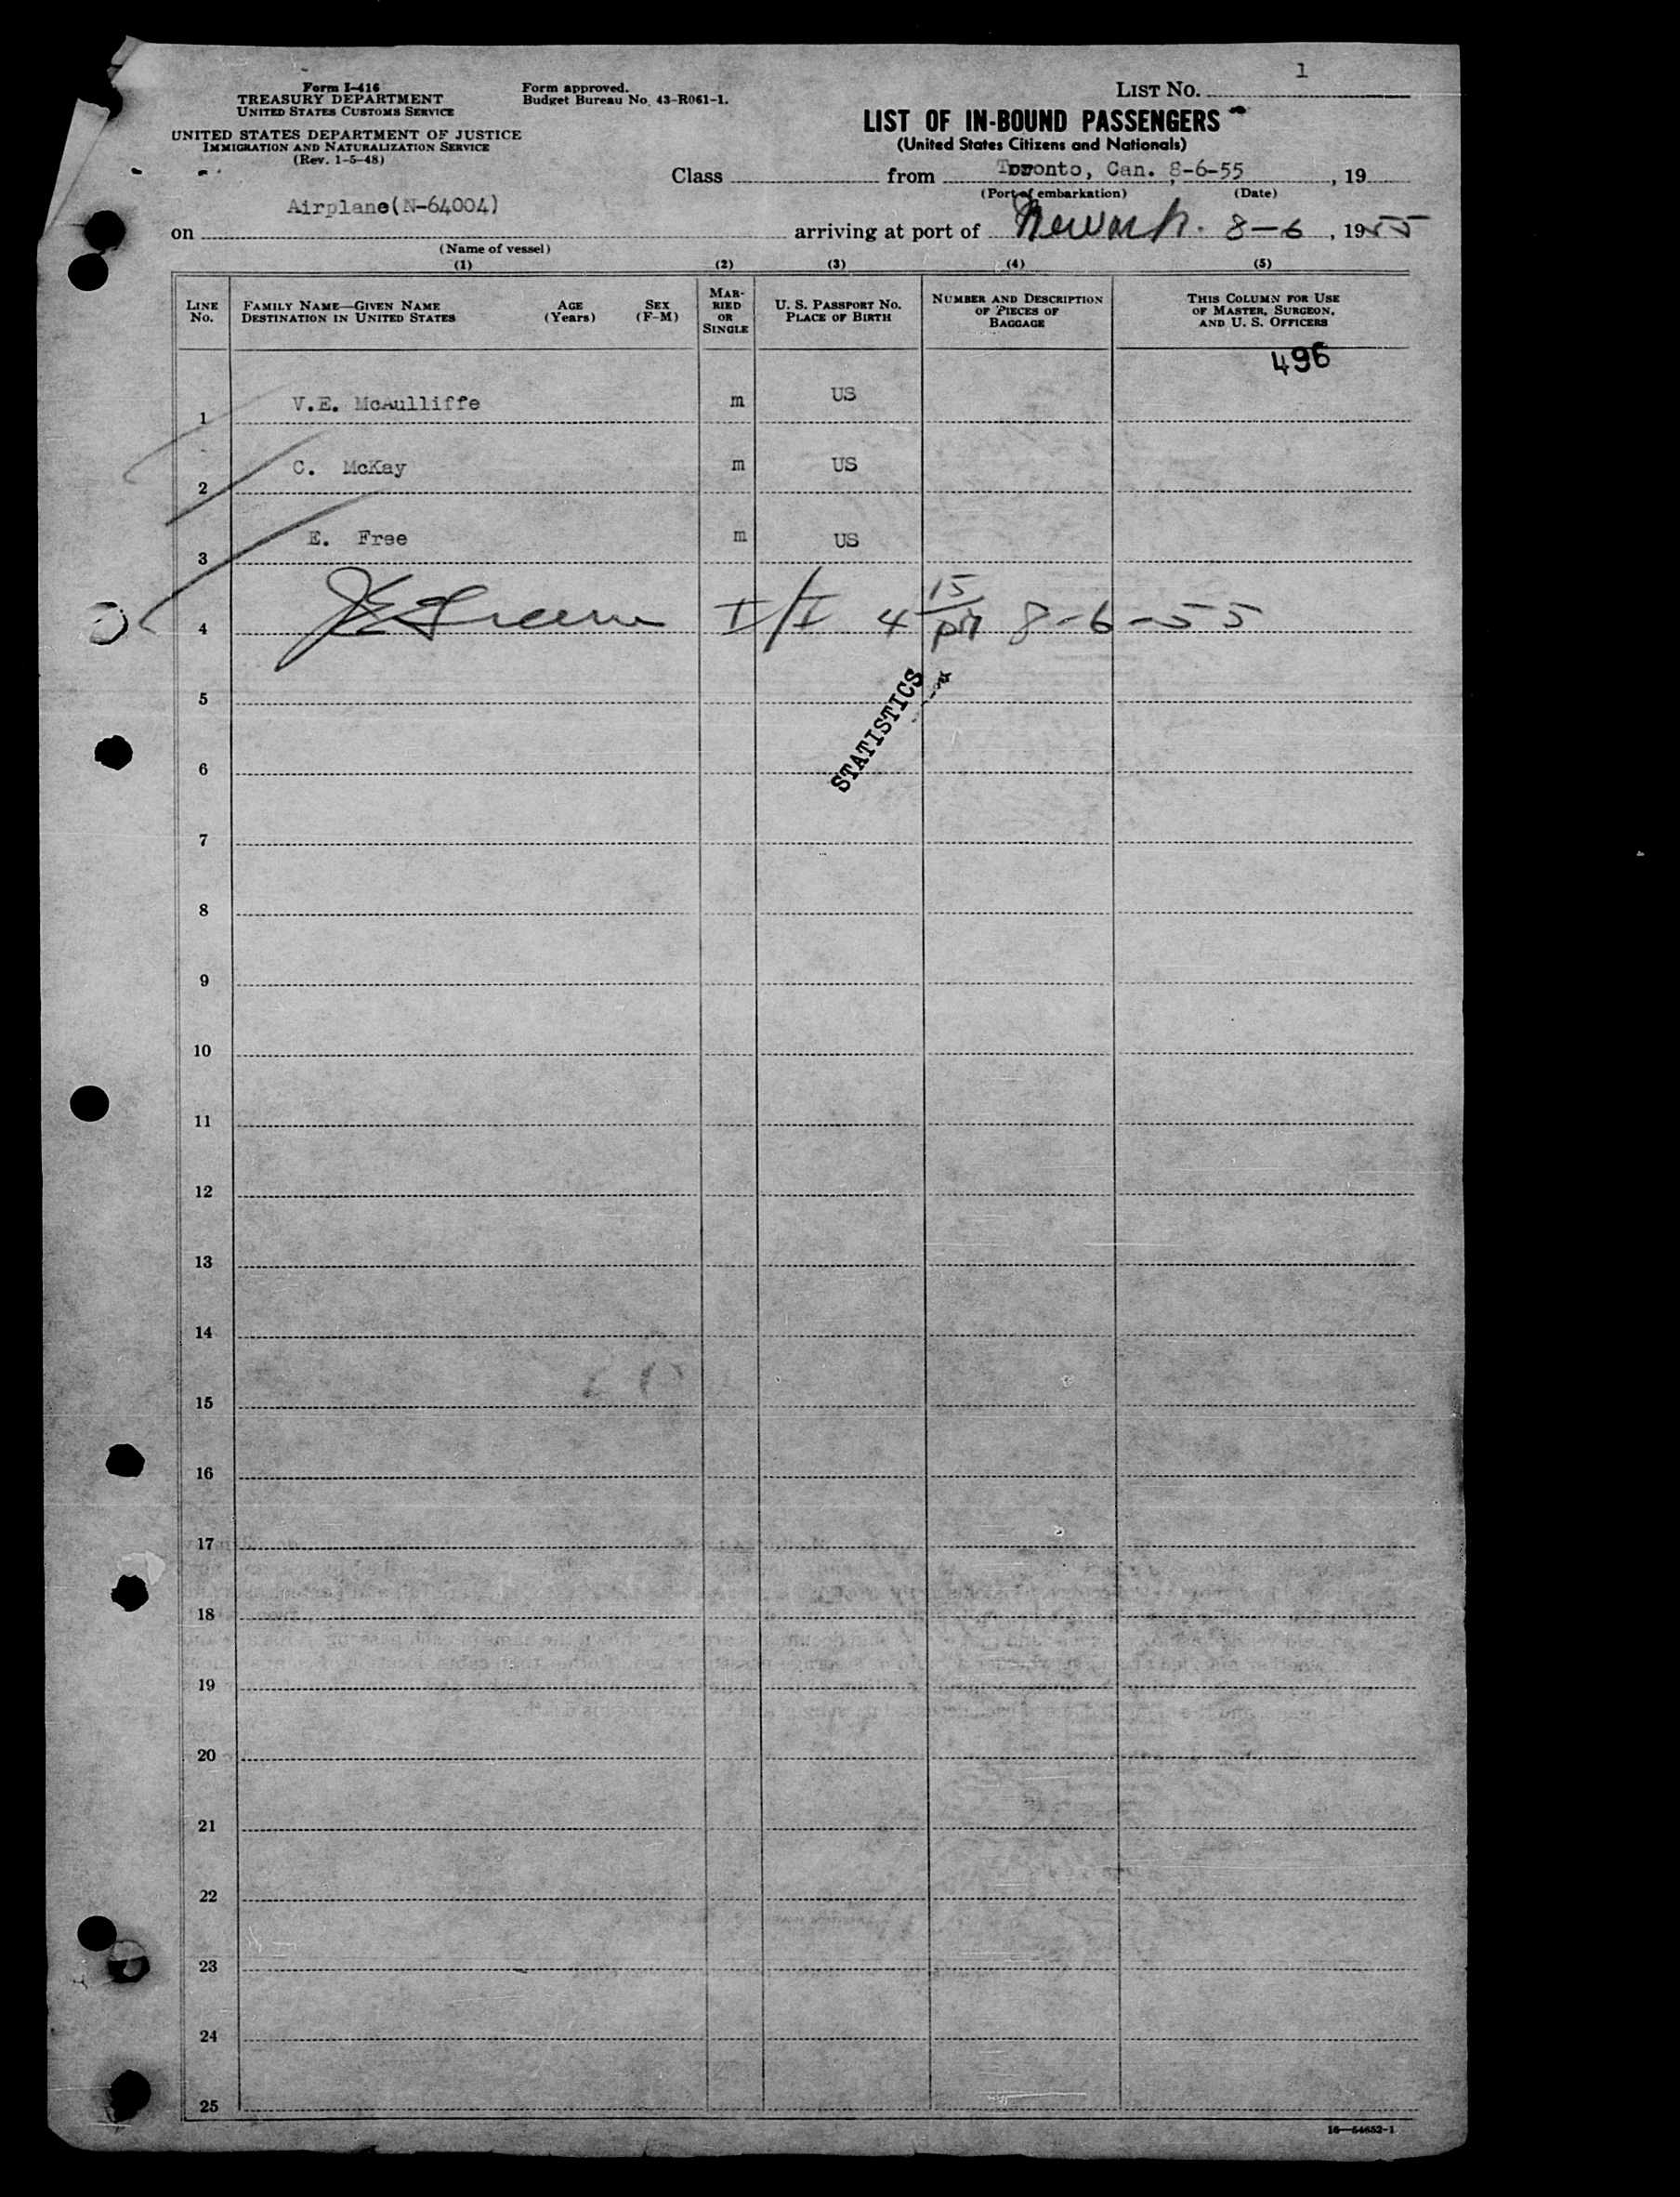 1
Form I-416
TREASURY DEPARTMENT
UNITED STATES CUSTOMS SERVICE
UNITED STATES DEPARTMENT OF JUSTICE
IMMIGRATION AND NATURALIZATION SERVICE
(Rev. 1-5-48)
Form approved.
Budget Bureau No. 43-R061-1.
LIST NO.
LIST OF IN-BOUND PASSENGERS
(United States Citizens and Nationals)
Class from Toronto, Can. 8-6-55, 19
(Port of embarkation) (Date)
Airplane(N-64004)
on arriving at port of Newark. 8-6, 1955
(Name of vessel)
(1) (2) (3) (4) (5)
LINE No.
FAMILY NAME—GIVEN NAME
DESTINATION IN UNITED STATES
AGE (Years)
SEX (F-M)
MARRIED OR SINGLE
U. S. PASSPORT NO.
PLACE OF BIRTH
NUMBER AND DESCRIPTION
OF PIECES OF
BAGGAGE
THIS COLUMN FOR USE
OF MASTER, SURGEON,
AND U. S. OFFICERS
496
1 V.E. McAulliffe m US
2 C. McKay m US
3 E. Free m US
4 I/I 4 15/pm 8-6-55
STATISTICS
5
6
7
8
9
10
11
12
13
14
15
16
17
18
19
20
21
22
23
24
25
16—54652-1